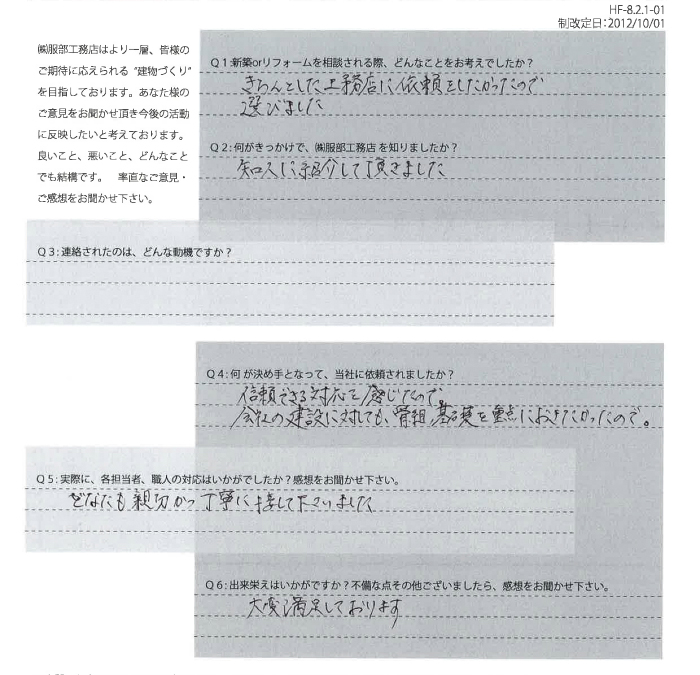 HF-8.2.1-01
制改定日:2012/10/01
㈱服部工務店はより一層、皆様の
ご期待に応えられる “建物づくり”
を目指しております。あなた様の
ご意見をお聞かせ頂き今後の活動
に反映したいと考えております。
良いこと、悪いこと、どんなこと
でも結構です。 率直なご意見・
ご感想をお聞かせ下さい。
Q1:新築orリフォームを相談される際、どんなことをお考えでしたか?
きちんとした工務店に依頼をしたかったので
選びました
Q2:何がきっかけで、㈱服部工務店 を知りましたか?
知人に紹介して頂きました
Q3:連絡されたのは、どんな動機ですか?
Q4:何 が決め手となって、当社に依頼されましたか?
信頼できる対応を感じたので。
会社の建設に対しても、骨組 基礎を重点におきたかったので。
Q5:実際に、各担当者、職人の対応はいかがでしたか?感想をお聞かせ下さい。
どなたも親切かつ丁寧に接して下さいました
Q6:出来栄えはいかがですか?不備な点その他ございましたら、感想をお聞かせ下さい。
大変満足しております